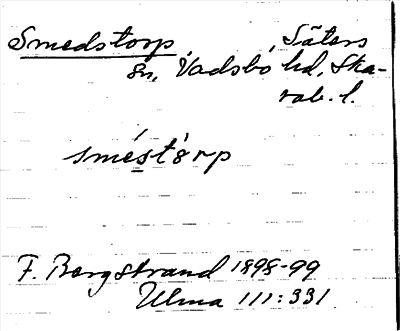 Smedstorp, Säters
sn, Vadsbo hd, Ska-
rab. l.
sméstörp
F. Bergstrand 1898-99
Ulma 111:331